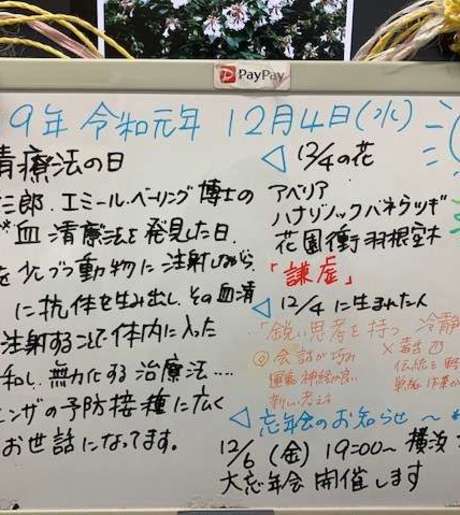 PayPay
9年 令和元年 12月4日(水)
清療法の日
三郎、エミール・ベーリング博士の
血清療法を発見した日。
を少しづつ動物に注射しながら、
に抗体を生み出し、その血清
注射することで体内に入った
和し、無力化する治療法....
エンザの予防接種に広く
お世話になってます。
◁ 12/4の花
アベリア
ハナゾノツクバネウツギ
花園衝羽根空木
「謙虚」
◁ 12/4に生まれた人
「鋭い思考を持つ 冷静
◎会話が巧み
運動神経が良い
新しい考え
×毒舌
伝統を軽
単純作業が
◁ 忘年会のお知らせ〜
12/6(金) 19:00〜 横浜
大忘年会 開催します